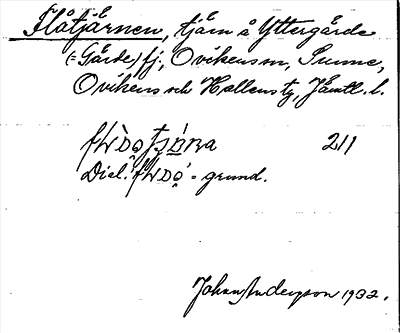 Flåtjärnen, tjärn å Yttergårde
(= Gårde) fj., Ovikens sn, Sunne,
Ovikens och Hallens tg, Jämtl. l.
211
Dial. = grund.
Johan Anderson 1932.